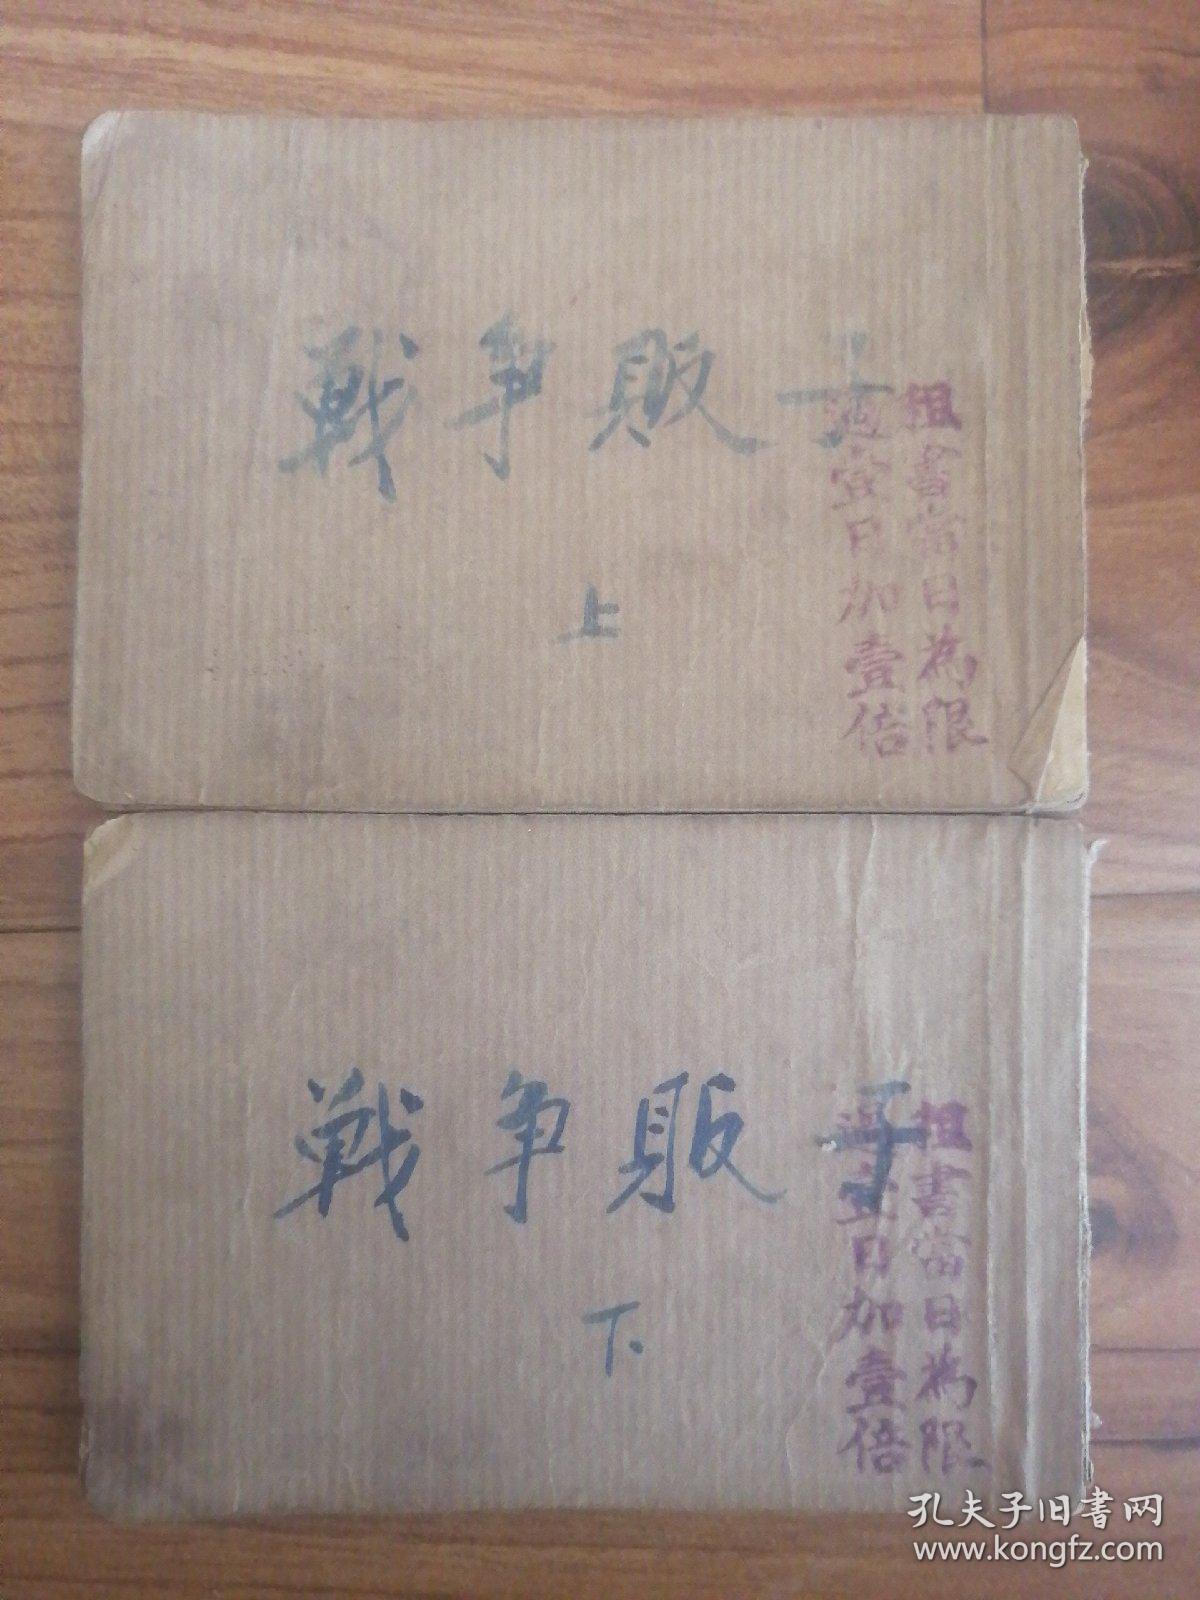 戰争販子
上
租書當日為限
過壹日加壹倍
戰争販子
下
租書當日為限
過壹日加壹倍
孔夫子旧书网
www.kongfz.com